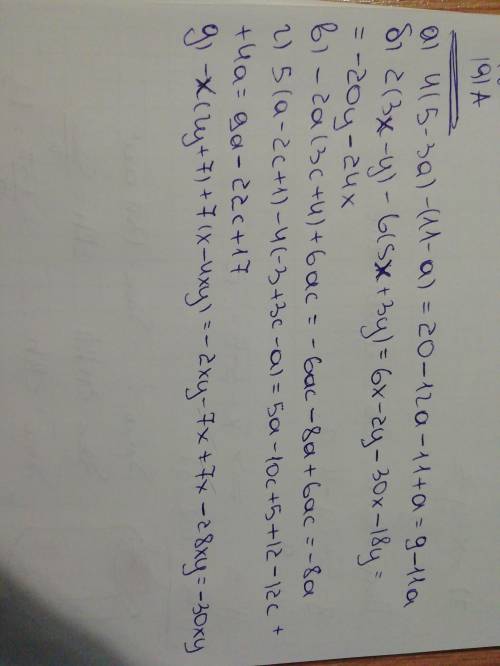 191A
а) 4(5-3a)-(11-a)=20-12a-11+a=9-11a
б) 2(3x-y)-6(5x+3y)=6x-2y-30x-18y=
=-20y-24x
в) -2a(3c+4)+6ac=-6ac-8a+6ac=-8a
г) 5(a-2c+1)-4(-3+3c-a)=5a-10c+5+12-12c+
+4a=9a-22c+17
д) -x(2y+7)+7(x-4xy)=-2xy-7x+7x-28xy=-30xy